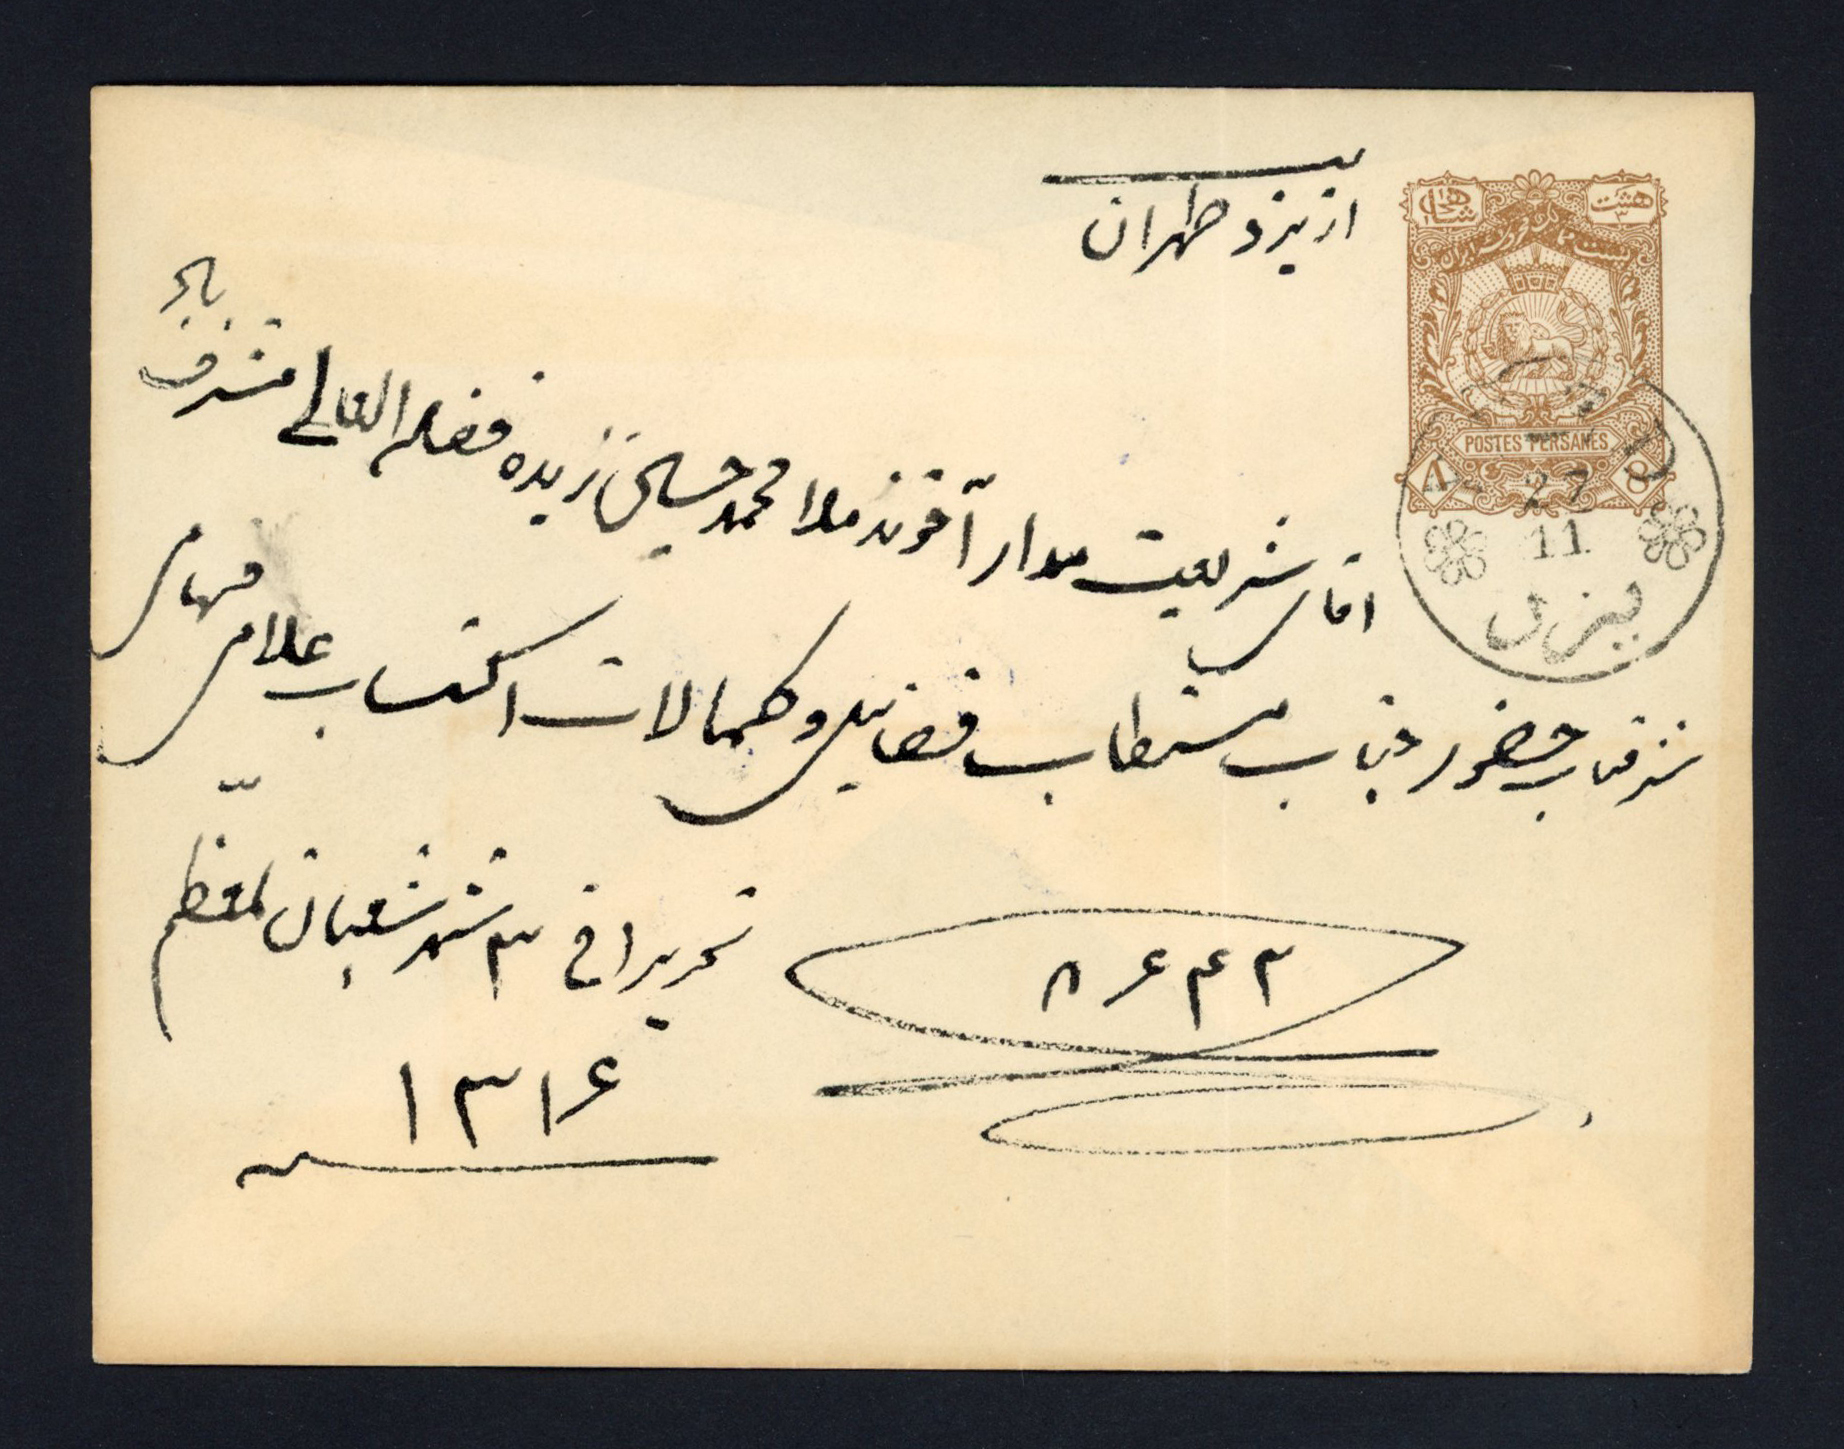 از یزد طهران
شرفیاب حضور جناب مستطاب فضایل و کمالات اکتساب علامی فهامی
آقای شریعتمدار آخوند ملا محمد حسین زیده فضله العالی مشرف
باد
۸۶۴۲
تحریرا فی ۳ شهر شعبان المعظم
۱۳۱۶
هشت
شاهی
POSTES PERSANES
۸ 8
27
11
یزد